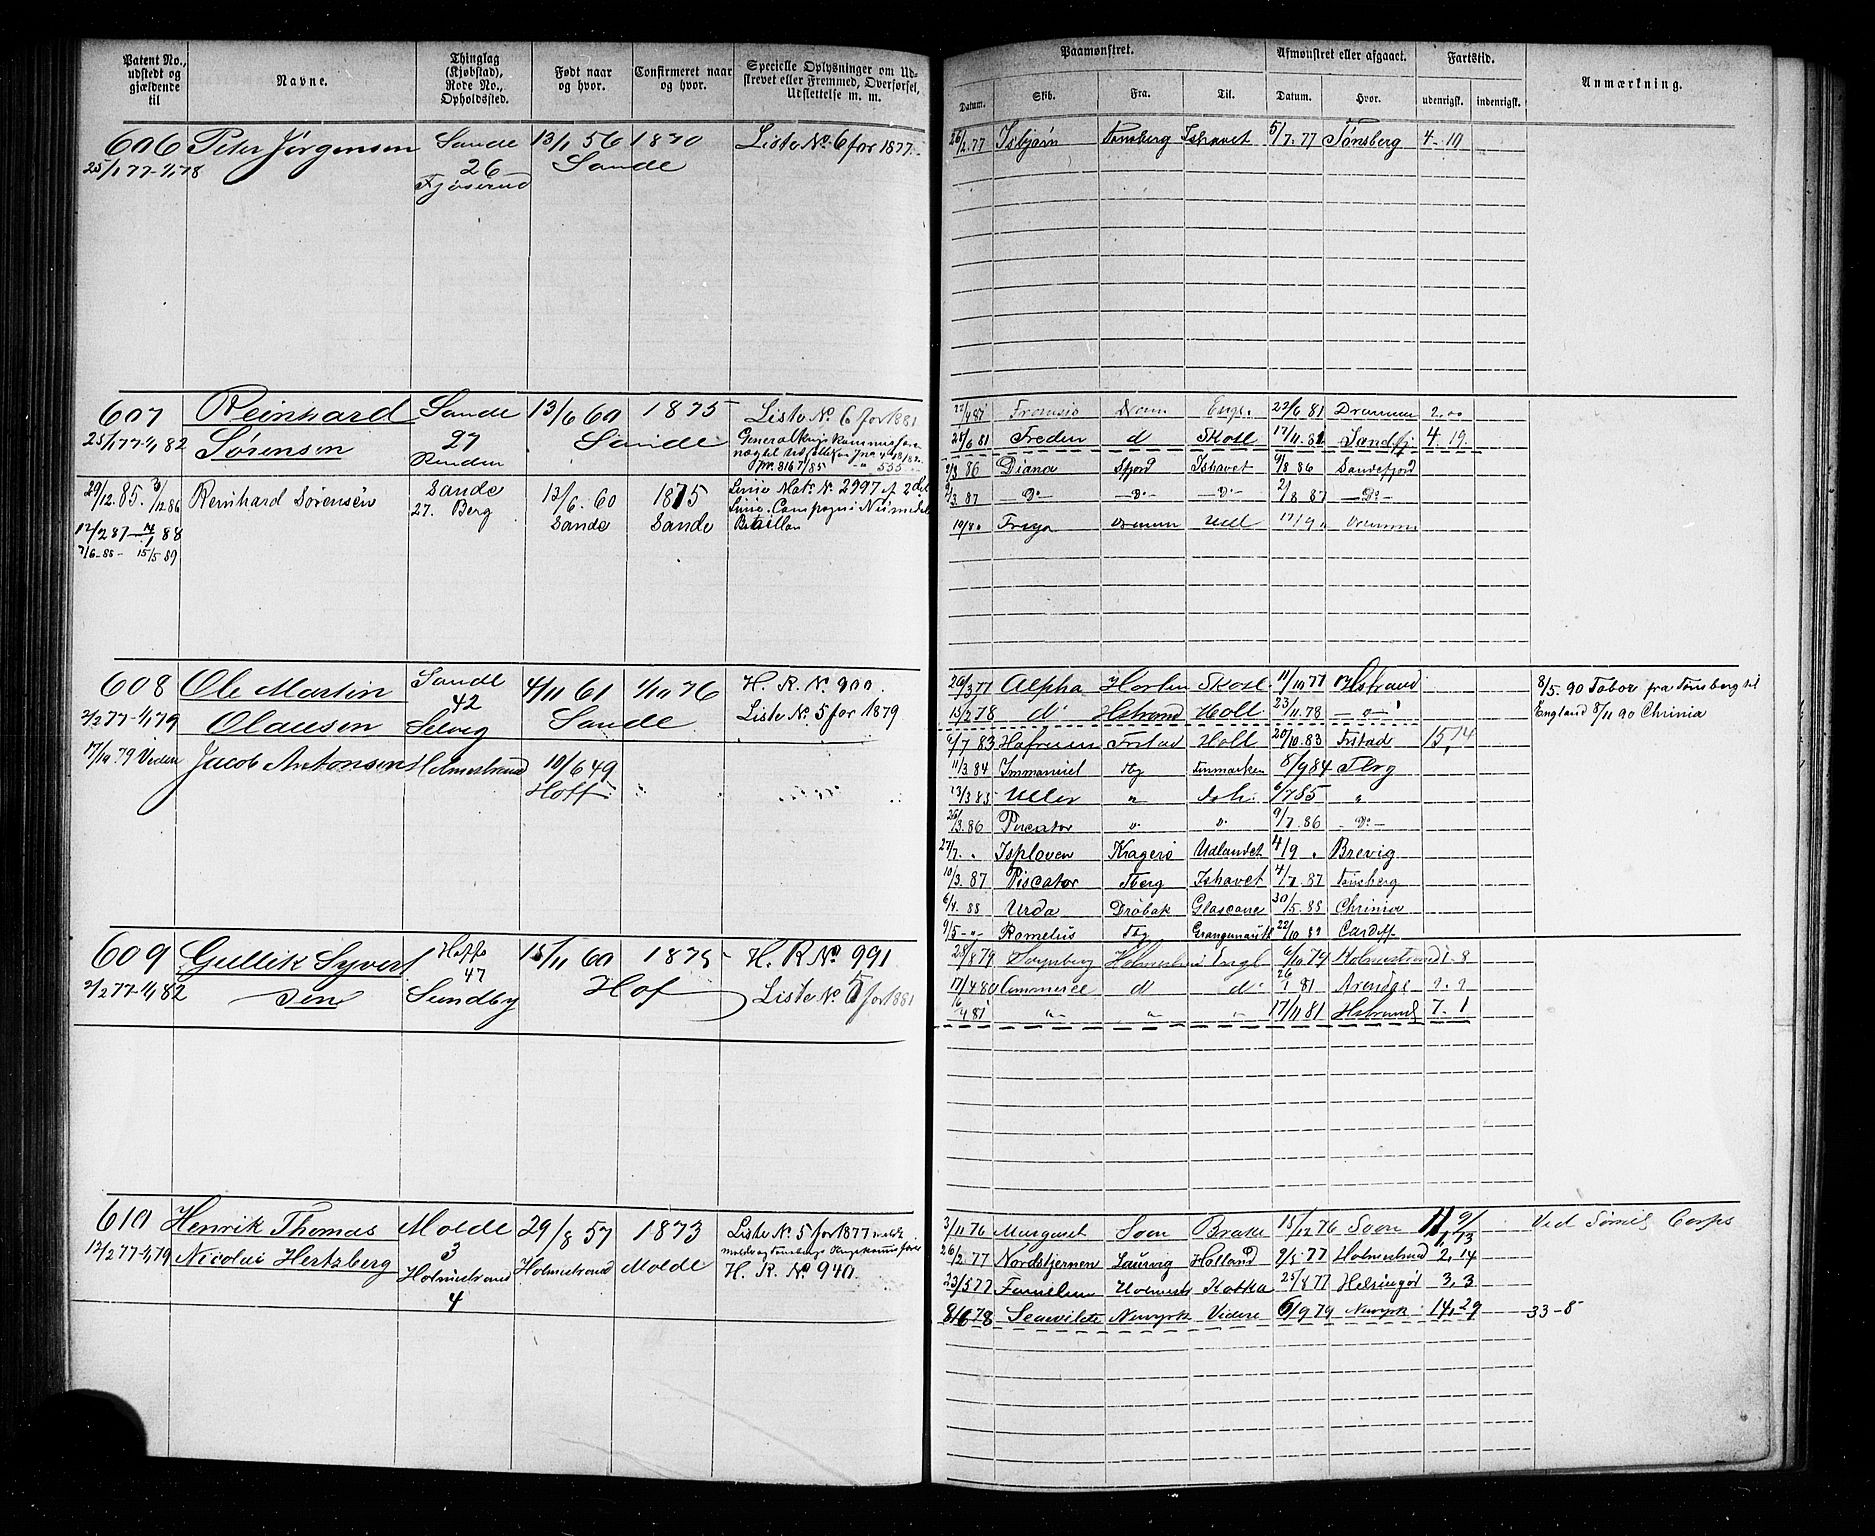 Patent No., udstedt og gjældende til
Navne.
Thinglag (Kjøbstad), Rode No., Opholdssted.
Født naar og hvor.
Confirmeret naar og hvor.
Specielle Oplysninger om Udskrevet eller Fremmed, Overførsel, Udslettelse m. m.
Paamønstret.
Afmønstret eller afgaaet.
Fartstid.
Anmærkning.
Datum. Skib. Fra. Til. Datum. Hvor. udenrigsk. indenrigsk.
606 Peter Jørgensen Sande 13/1 56 1870 Liste No. 6 for 1877.
25/1 77-1/1 78 26 Sande
Fjøserud
26/2.77 Isbjørn Tønsberg Ishavet 5/7.77 Tønsberg 4-10
607 Reinhard Sande 13/6 60 1875 Liste No. 6 for 1881
25/1 77-1/1 82 Sørensen 27 Sande
29/12.85. Reinhard Sørensen Sande 13/6.60 1875 Linie Mats No. 2997 af 2det
27. Berg Sande Sande Linie Compagni Numedal
12/2 87 88 Bataillon
7/6-88- 15/5 89
22/4 81 Dram Engl. 23/6 81 Drammen 2.00
28/6 81 Freden d Skotl 17/11.81 Sandefj 4.19.
9/3 86 Diana Sfjord Ishavet 9/8 86 Sandefjord
9/3 87 —Do— —Do— —Do— 2/8.87 —Do—
Freya Dramm Udl
608 Ole Martin Sande 4/11 61 1/10 76 H. R. No. 900.
2/2 77-1/1 79 Olausen 42 Sande Liste No. 5 for 1879
Selvig
17/10.79 Jacob Antonsen Holmestrand 10/6 49
Hoff
26/3 77 Alpha Horten Skotl 11/10 77 Hstrand
15/2 78 d Hstrand Holl 23/11.78 — " —
6/7 83 Hafrsun Frstad Holl 20/10.83 Frstad 15,14
11/3.84 Immanuel Tbg Finmarken 8/9 84 Tbrg
13/3 85 Uller " Ish. 6/7 85 "
25/3.86 Piscator " " 9/7.86 —Do—
27/7. " Isploven Kragerø Udlandet 4/9 " Brevig
10/3.87 Piscator Tberg Ishavet 4/7.87 Tønsberg
6/4.88 Urda Drøbak Glascove 30/5.88 Chrinia
9/5-"- Romelius Tbg Grangemouth 22/10 89 Cardiff
8/5.90 Tabor fra Tønsberg til
England 8/11 90 Chrinia
609 Gullik Syvert Hoffs 15/11 60 1875 H. R. No. 991
2/2 77-1/1 82 sen 47 Hof Liste No. 5 for 1881
Sundby
28/8 79 Sarpsborg Holmestrand Engl 6/10 79 Holmestrand 1-8
17/4 80 Commerce d d 26/1 81 Arendal 9.9
16/4 81 " " " 17/11 81 Hstrand 7.1
610 Henrik Thomas Molde 29/8 57 1873 Liste No. 5 for 1877
12/2 77-1/1 79 Nicolai Hertzberg 3 Holmestrand Molde
Holmestrand H. R. No. 940.
4
3/11 76 Margaret Soon Brake 15/12 76 Soon
26/2.77 Nordstjernen Laurvig Holland 9/5 77 Holmestrand 2,14
23/5 77 Familien Holmestr Kotka 25/8 77 Helsingør 3,3
8/6 78 Newyork Videre 6/9 79 Newyork 14,29
Ved Sømil. Corps
33-8